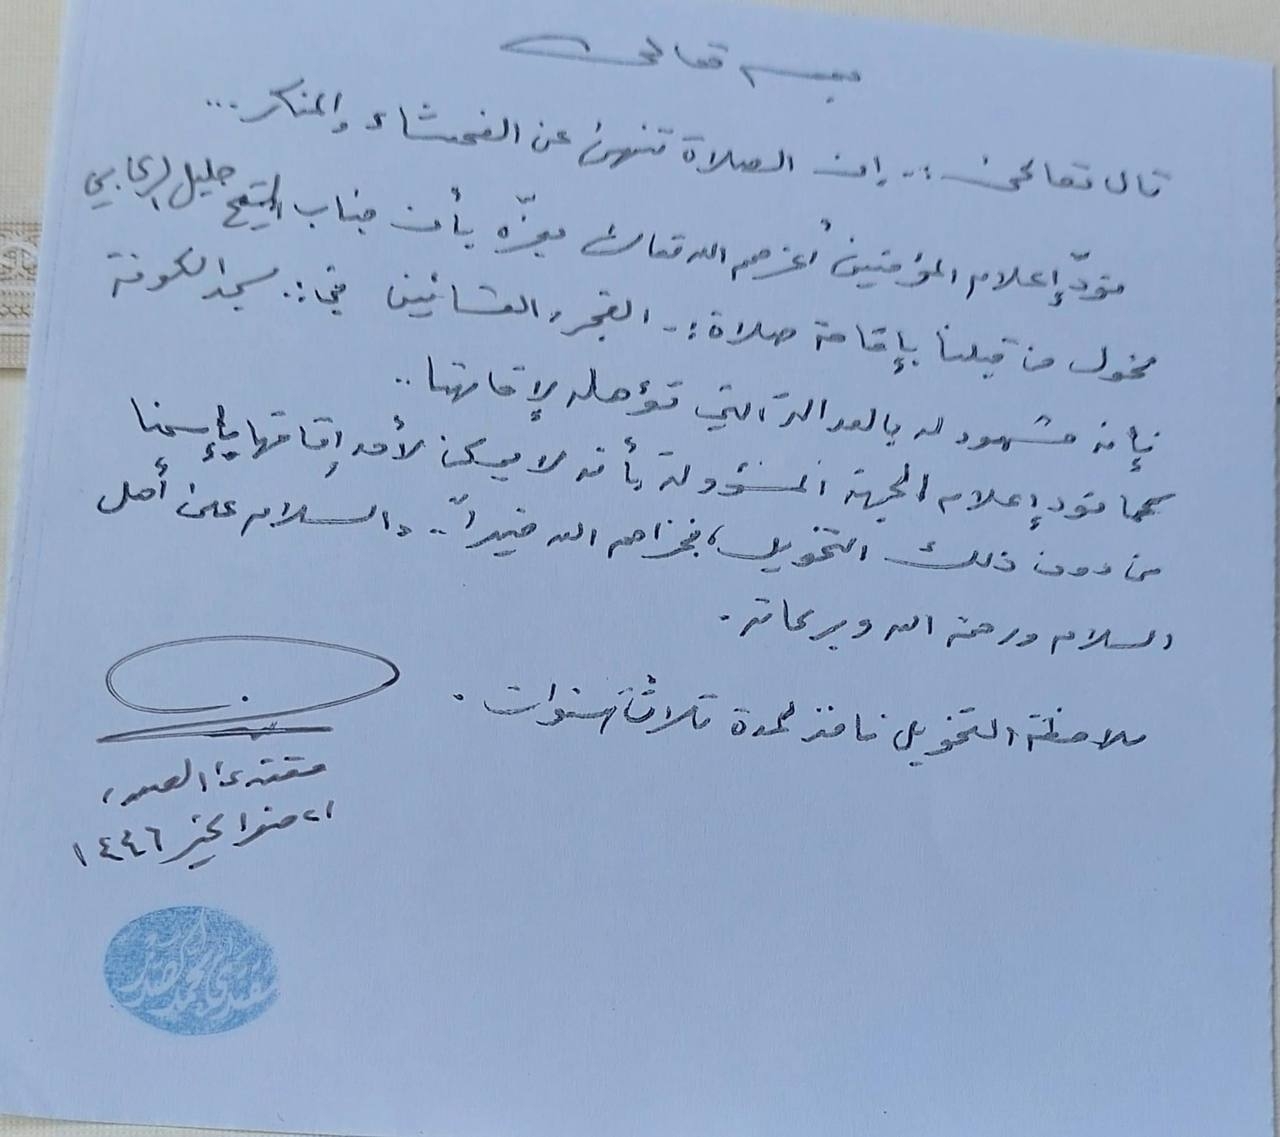 بسمه تعالى
قال تعالى :ـ إن الصلاة تنهى عن الفحشاء والمنكر...
نودّ إعلام المؤمنين أعزهم الله تعالى بعزّه بأن جناب الشيخ جليل
مخول من قبلنا بإقامة صلاة :ـ الفجر والعشائين في :. مسجد الكوفة
فإنه مشهود له بالعدالة التي تؤهله لإقامتها ..
كما نود إعلام الجهة المسؤولة بأنه لا يمكن لأحد إقامتها بإسمنا
من دون ذلك التخويل، فجزاهم الله خيراً .. والسلام على أهل
السلام ورحمة الله وبركاته .
ملاحظة التخويل نافذ لمدة ثلاث سنوات .
مقتدى الصدر
صفر الخير ١٤٤٦
مقتدى محمد الصدر